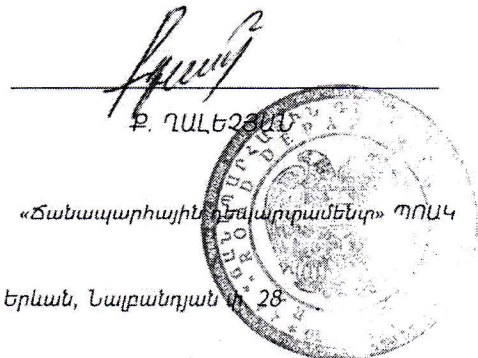 Ք. ՂԱԼԵՉՅԱՆ
«Ճանապարհային դեպարտամենտ» ՊՈԱԿ
Երևան, Նալբանդյան փ. 28
ROAD DEPA